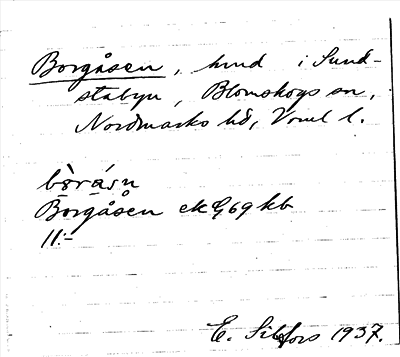 Borgåsen, hmd i Sund-
stabyn, Blomskogs sn,
Nordmarks hd, Vrml l.
bòrásn̥
Borgåsen ek G 69 kb
11:-
E. Sibfors 1937.